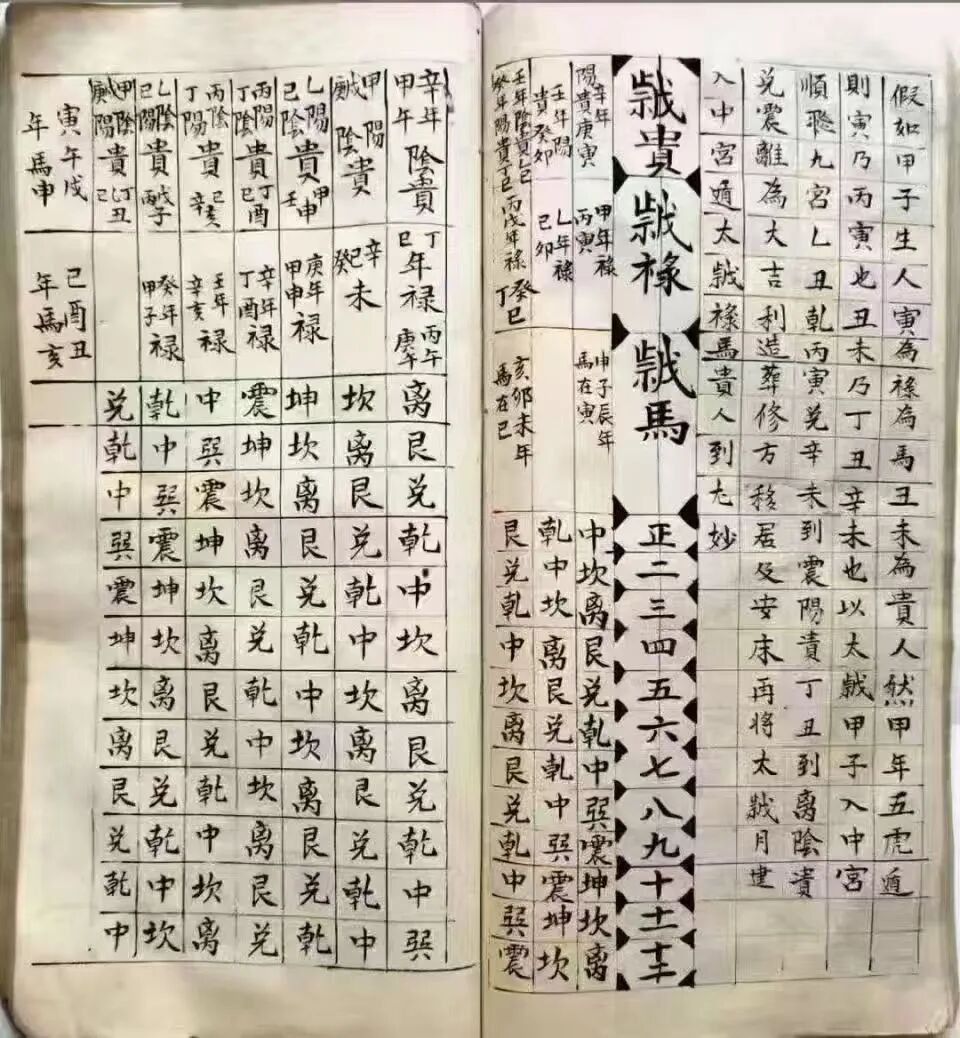 假如甲子生人寅為祿為馬丑未為貴人然甲年五虎遁
則寅乃丙寅也丑未乃丁丑辛未也以太歲甲子入中宮
順飛九宮乙丑乾丙寅兌辛未到震陽貴丁丑到离陰貴
兌震離為大吉利造葬修方移居及安床再將太歲月建
入中宮遁太歲祿馬貴人到尤妙
歲貴
歲祿
歲馬
正二三四五六七八九十十一十二
辛年
陽貴庚寅
甲年祿
丙寅
申子辰年
馬在寅
中坎离艮兌乾中巽震坤坎离
壬年陽
貴癸卯
乙年祿
己卯
乾中坎离艮兌乾中巽震坤坎
壬年陰貴乙巳
癸年陽貴丁巳
丙戊年祿癸巳
丁巳
亥卯未年
馬在巳
艮兌乾中坎离艮兌乾中巽震
辛年
甲午
陰貴
丁
己年禄丙午
庚午
离艮兑乾中坎离艮兑乾中巽
甲陽
陰貴
辛未
坎离艮兑乾中坎离艮兑乾中
乙陽
己陰
貴甲申
壬申
庚年
甲申
禄
坤坎离艮兑乾中坎离艮兑乾
丙陽
丁陰
貴丁酉
己酉
辛年
丁酉
禄
震坤坎离艮兑乾中坎离艮兑
丙陰
丁陽
貴己亥
辛亥
壬年
辛亥
禄
中巽震坤坎离艮兑乾中坎离
乙陰
己陽
貴戊子
丙子
癸年
甲子
禄
乾中巽震坤坎离艮兑乾中坎
甲陰
戊庚陽
貴丁丑
己丑
兑乾中巽震坤坎离艮兑乾中
寅午戌
年馬申
巳酉丑
年馬亥